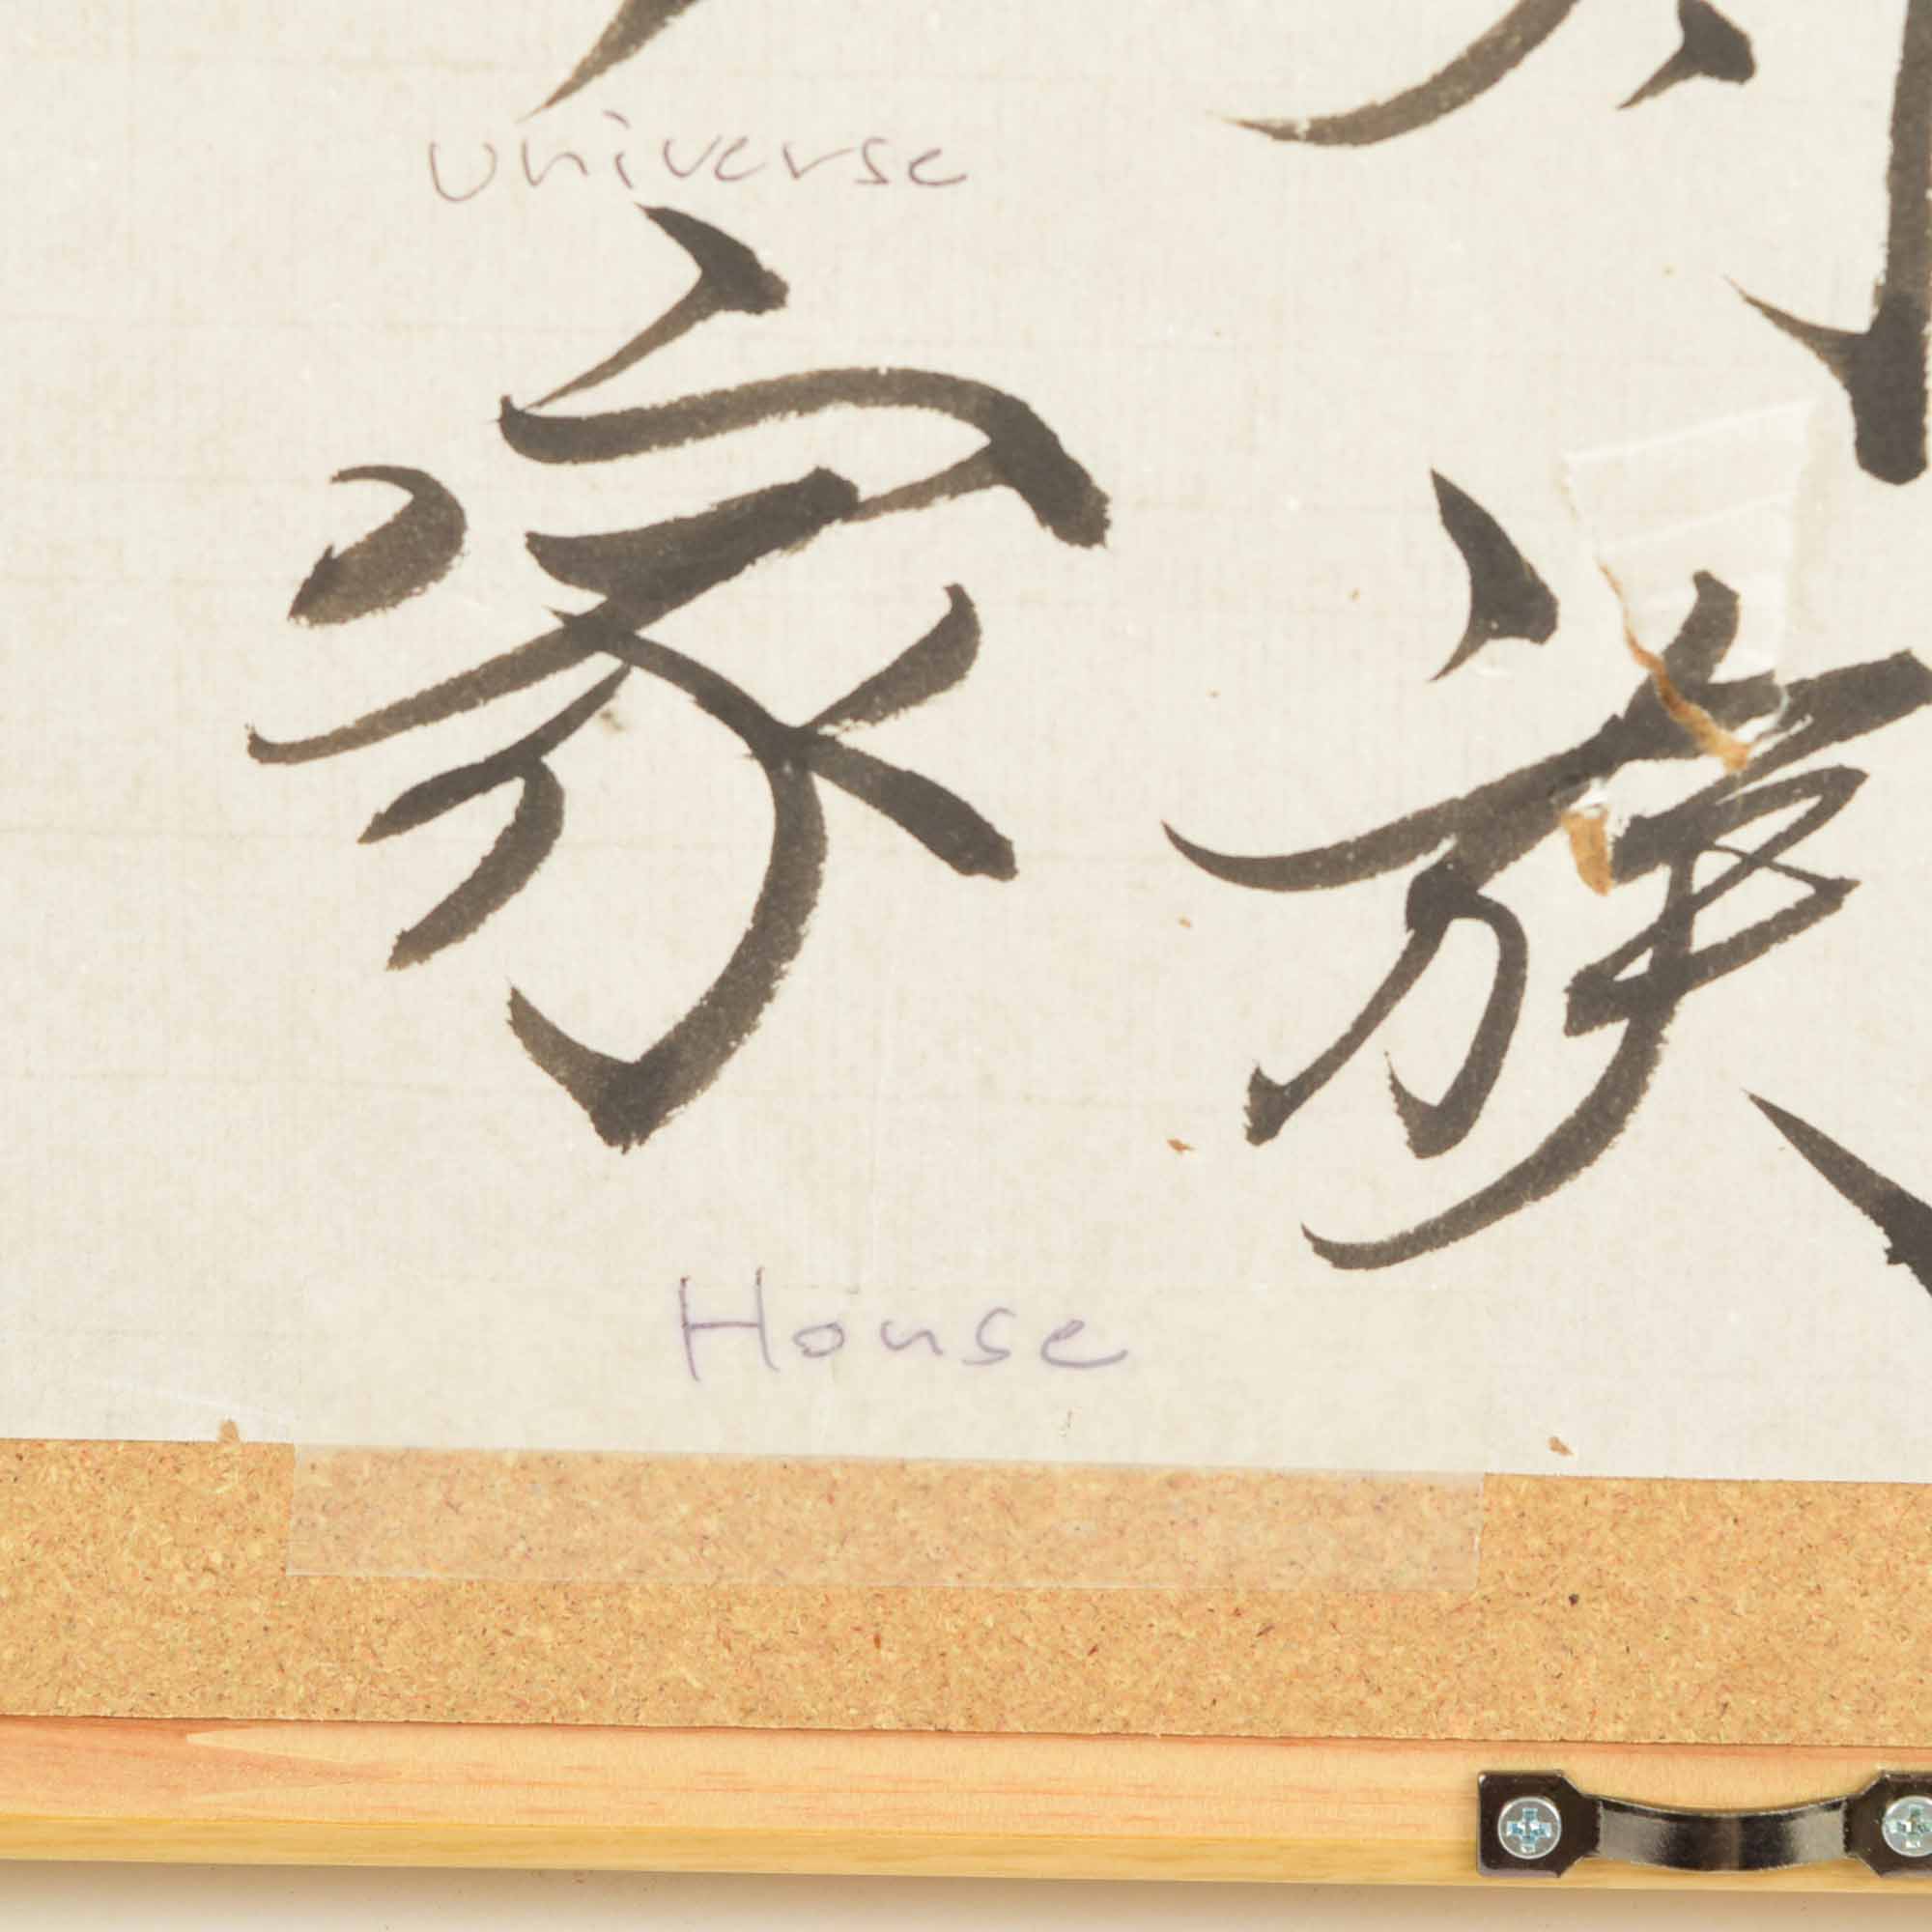 universe
家
族
House